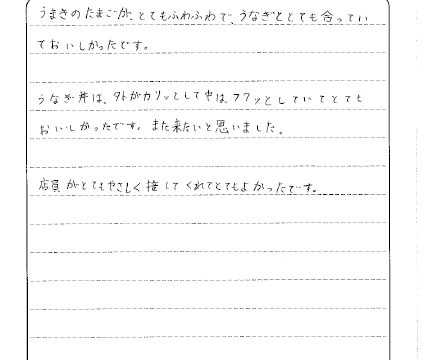 うまきのたまごが、とてもふわふわで、うなぎととても合ってい
ておいしかったです。
うなぎ丼は、外がカリッとして中は、フワッとしていてとても
おいしかったです。また来たいと思いました。
店員がとてもやさしく接してくれてとてもよかったです。